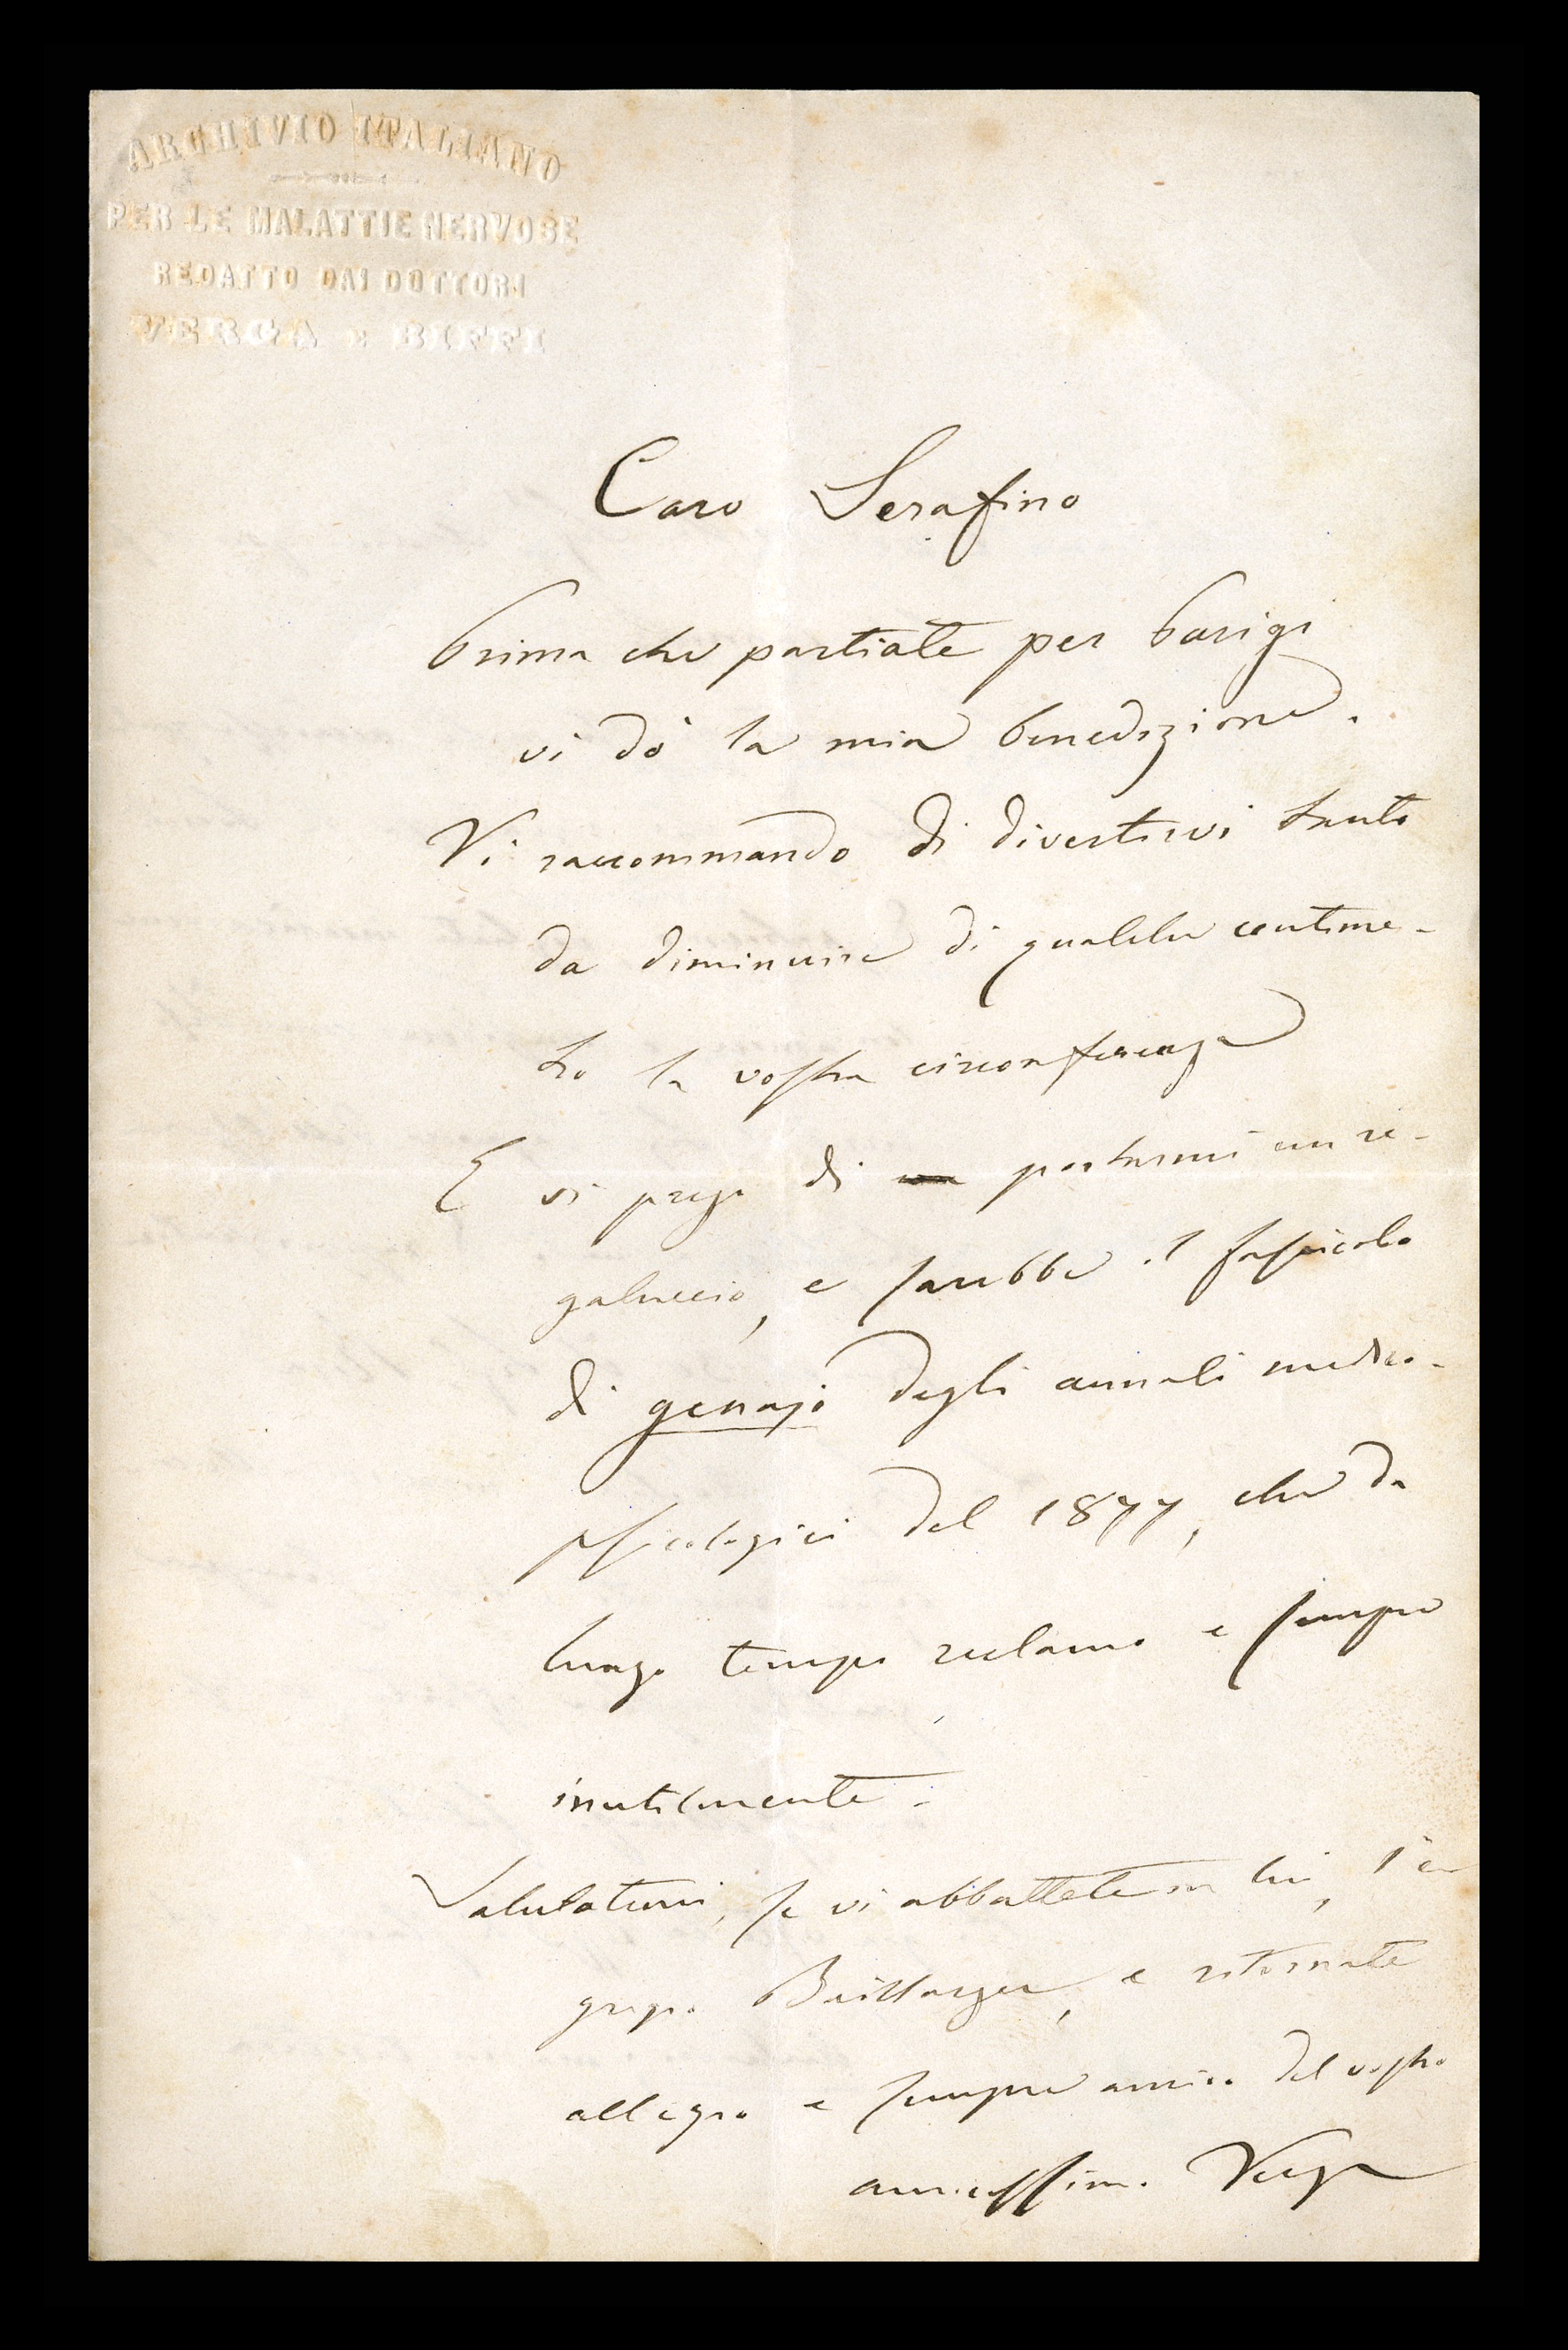 ARCHIVIO ITALIANO
PER LE MALATTIE NERVOSE
REDATTO DAI DOTTORI
VERGA E BIFFI
Caro Serafino
Prima che partiate per Parigi
vi dò la mia benedizione.
Vi raccommando di divertirvi tanto
da diminuire di qualche centime-
tro la vostra circonferenza
E vi prego di portarmi un re-
galuccio, e sarebbe il fascicolo
di genajo degli annali medico-
psicologici del 1877, che da
lungo tempo reclamo e sempre
inutilmente.
Salutatemi, se vi abbattete in lui, l'e
gregio Baillarger, e ritornate
allegro e sempre amico del vostro
amicissimo Verga